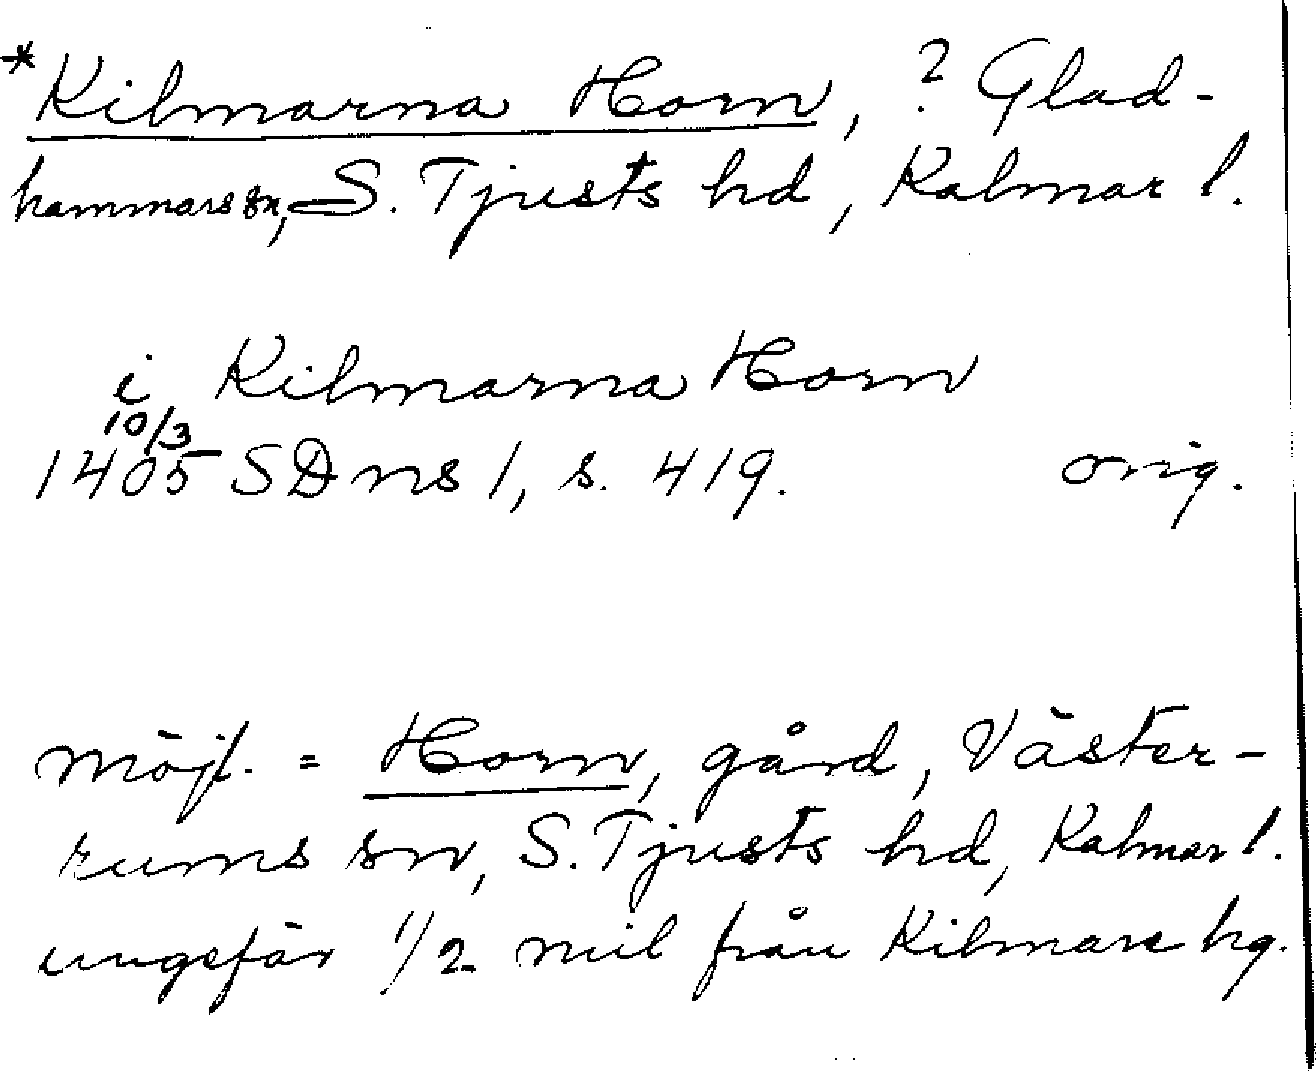 *Kilmarna Horn, ? Glad-
hammars sn, S. Tjusts hd, Kalmar l.
i Kilmarna Horn
10/3
1405 SDns 1, s. 419. orig.
möjl. = Horn, gård, Väster-
rums sn, S. Tjusts hd, Kalmar l.
ungefär 1/2 mil från Kilmare hg.